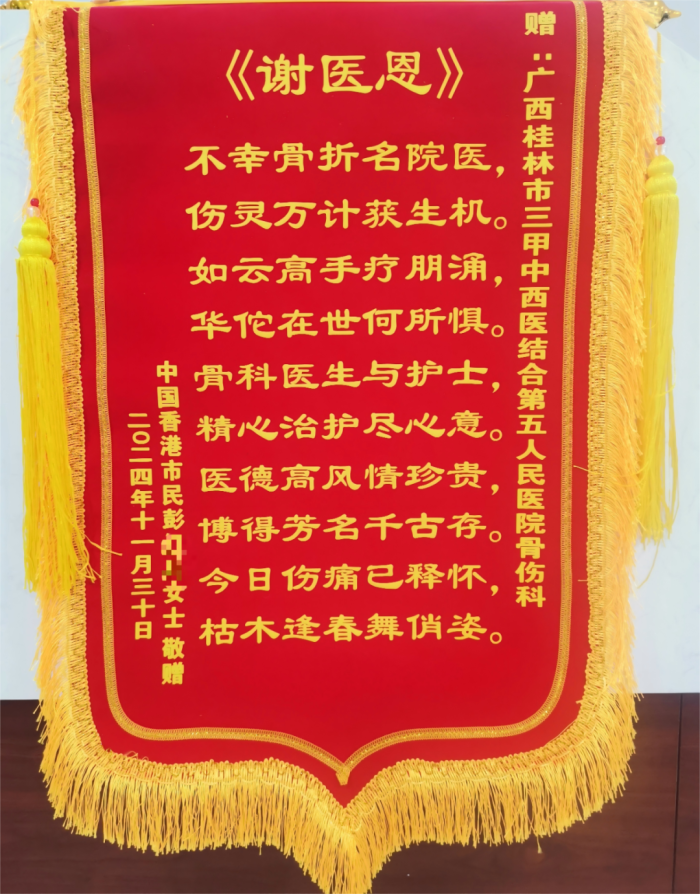 赠：广西桂林市三甲中西医结合第五人民医院骨伤科
《谢医恩》
不幸骨折名院医，
伤灵万计获生机。
如云高手疗朋涌，
华佗在世何所惧。
骨科医生与护士，
精心治护尽心意。
医德高风情珍贵，
博得芳名千古存。
今日伤痛已释怀，
枯木逢春舞俏姿。
中国香港市民彭女士 敬赠
二〇二四年十一月三十日